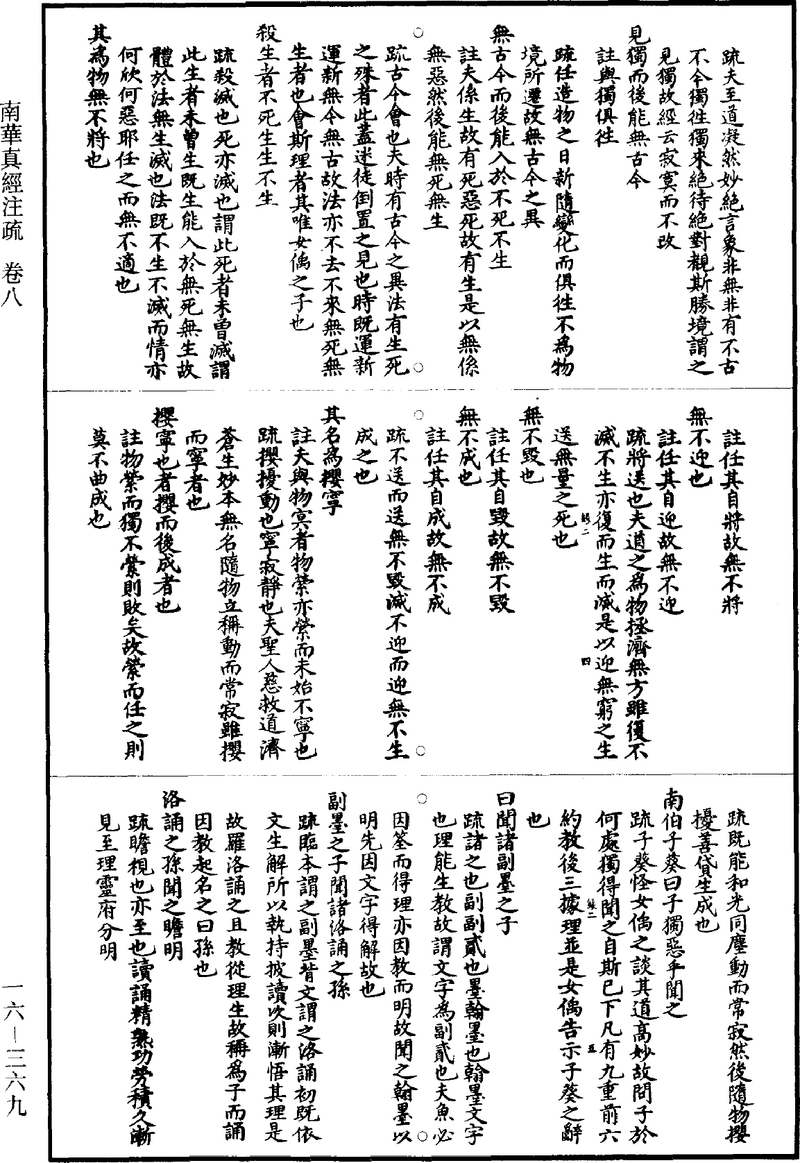 疏夫至道凝然妙絕言象非無非有不古
不今獨徃獨來絕待絕對覩斯勝境謂之
見獨故經云寂寞而不改
見獨而後能無古今
註與獨俱徃
疏任造物之日新隨變化而俱徃不爲物
境所遷故無古今之異
無古今而後能入於不死不生
註夫係生故有死惡死故有生是以無係
無惡然後能無死無生
疏古今會也夫時有古今之異法有生死
之殊者此蓋迷徒倒置之見也時既運新
運新無今無古故法亦不去不來無死無
生者也會斯理者其唯女偊之子也
殺生者不死生生不生
疏殺滅也死亦滅也謂此死者未曾滅謂
此生者未曾生既生能入於無死無生故
體於法無生滅也法既不生不滅而情亦
何欣何惡耶任之而無不適也
其爲物無不將也
註任其自將故無不將
無不迎也
註任其自迎故無不迎
疏將送也夫道之爲物拯濟無方雖復不
滅不生亦復而生而滅是以迎無窮之生
送無量之死也
無不毀也
註任其自毀故無不毀
無不成也
註任其自成故無不成
疏不送而送無不毀滅不迎而迎無不生
成之也
其名爲攖寧
註夫與物冥者物縈亦縈而未始不寧也
疏攖擾動也寧寂靜也夫聖人慈救道濟
蒼生妙本無名隨物立稱動而常寂雖攖
而寧者也
攖寧也者攖而後成者也
註物縈而獨不縈則敗矣故縈而任之則
莫不曲成也
疏既能和光同塵動而常寂然後隨物攖
擾善貸生成也
南伯子葵曰子獨惡乎聞之
疏子葵怪女偊之談其道高妙故問子於
何處獨得聞之自斯已下凡有九重前六
約教後三據理並是女偊告示子葵之辭
也
曰聞諸副墨之子
疏諸之也副副貳也墨翰墨也翰墨文字
也理能生教故謂文字爲副貳也夫魚必
因筌而得理亦因教而明故聞之翰墨以
明先因文字得解故也
副墨之子聞諸洛誦之孫
疏臨本謂之副墨背文謂之洛誦初既依
文生解所以執持披讀次則漸悟其理是
故羅洛誦之且教從理生故稱爲子而誦
因教起名之曰孫也
洛誦之孫聞之瞻明
疏瞻視也亦至也讀誦精熟功勞積久漸
見至理靈府分明
南華真經注疏 卷八
一六－三六九